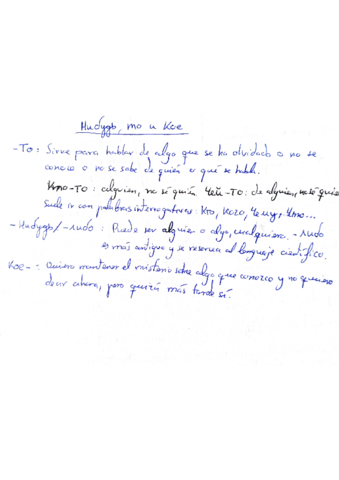 Нибудь, то и Кое
-То: Sirve para hablar de algo que se ha olvidado o no se
conoce o no se sabe de quién o qué se habla.
Кто-То: alguien, no sé quién. Чей-То: de alguien, no sé quien
Suele ir con palabras interrogativas Кто, Кого, Чему, Что...
-Нибудь/-либо: Puede ser alguien o algo, cualquiera. -либо
es más antiguo y se reserva al lenguaje científico.
Кое-: Quiero mantener el misterio sobre algo que conozco y no quiero
decir ahora, pero quizá más tarde sí.